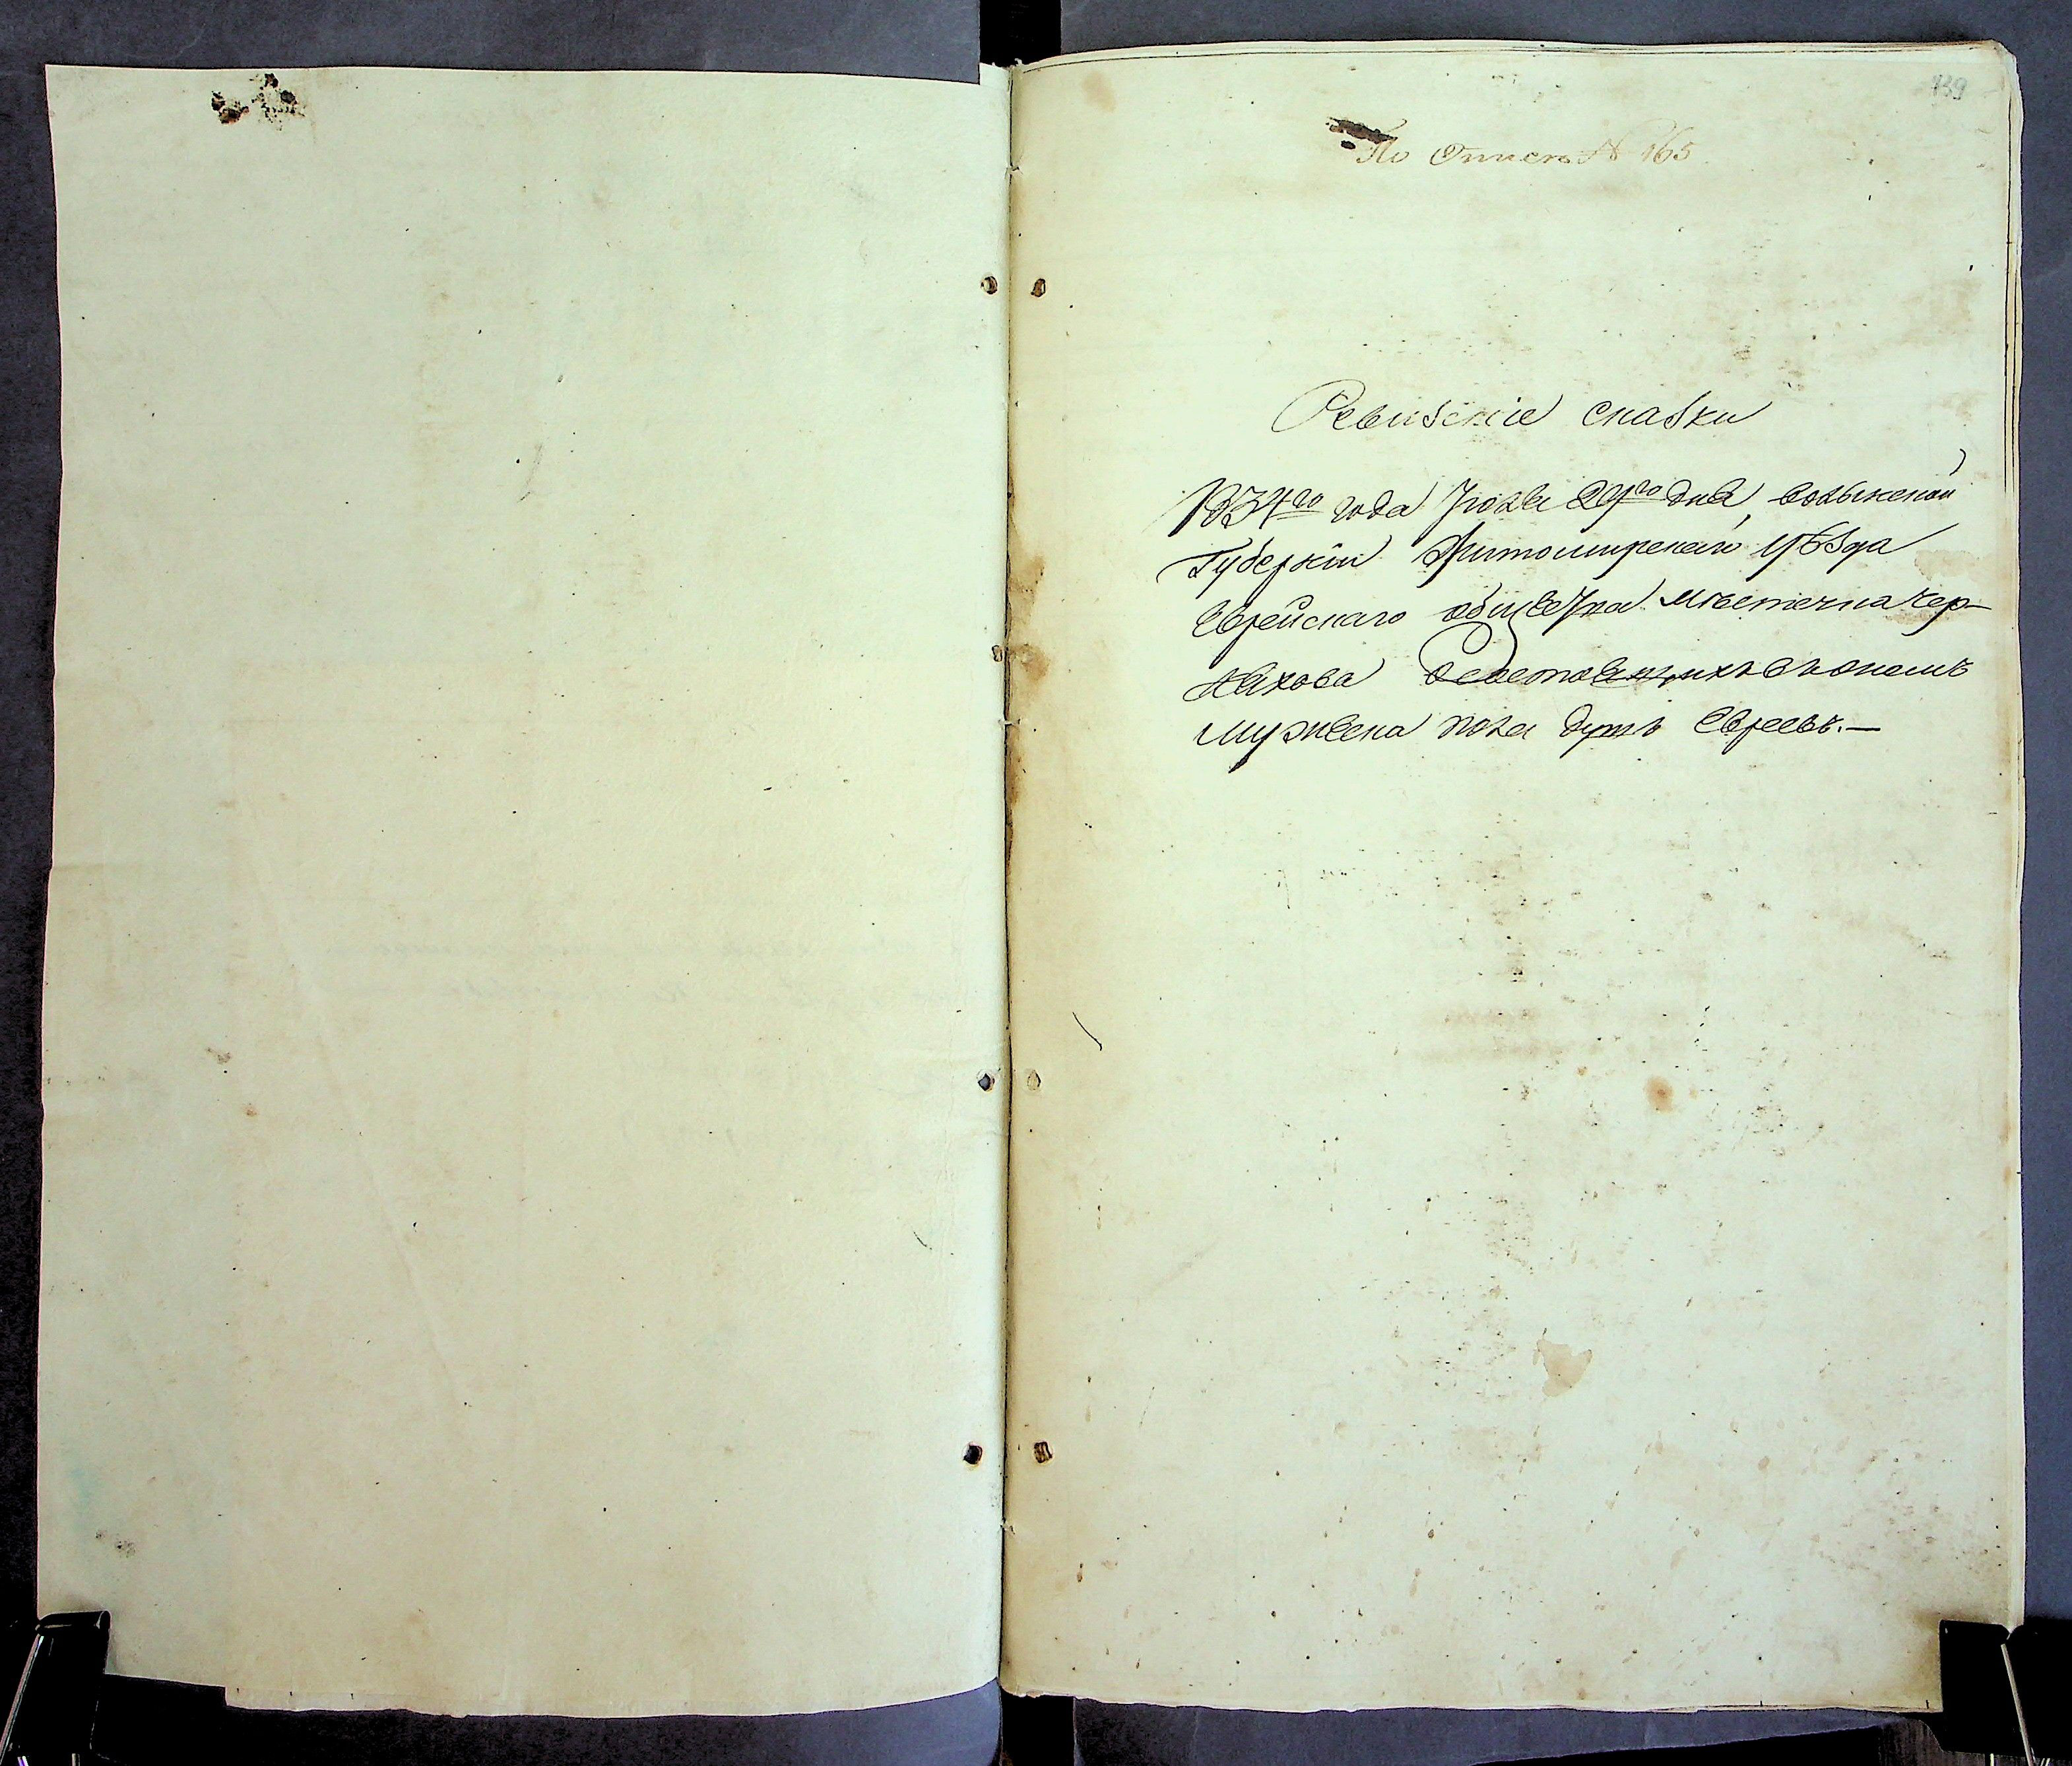 139
По Описи № 165
Ревизскіе сказки
1834го года Іюля дня, волынской
Губерніи Житомирскаго уѣзда
Еврейскаго общества Мѣстечка Чер-
няхова о состоящихъ въ ономъ
мужеска пола душъ Евреевъ.—